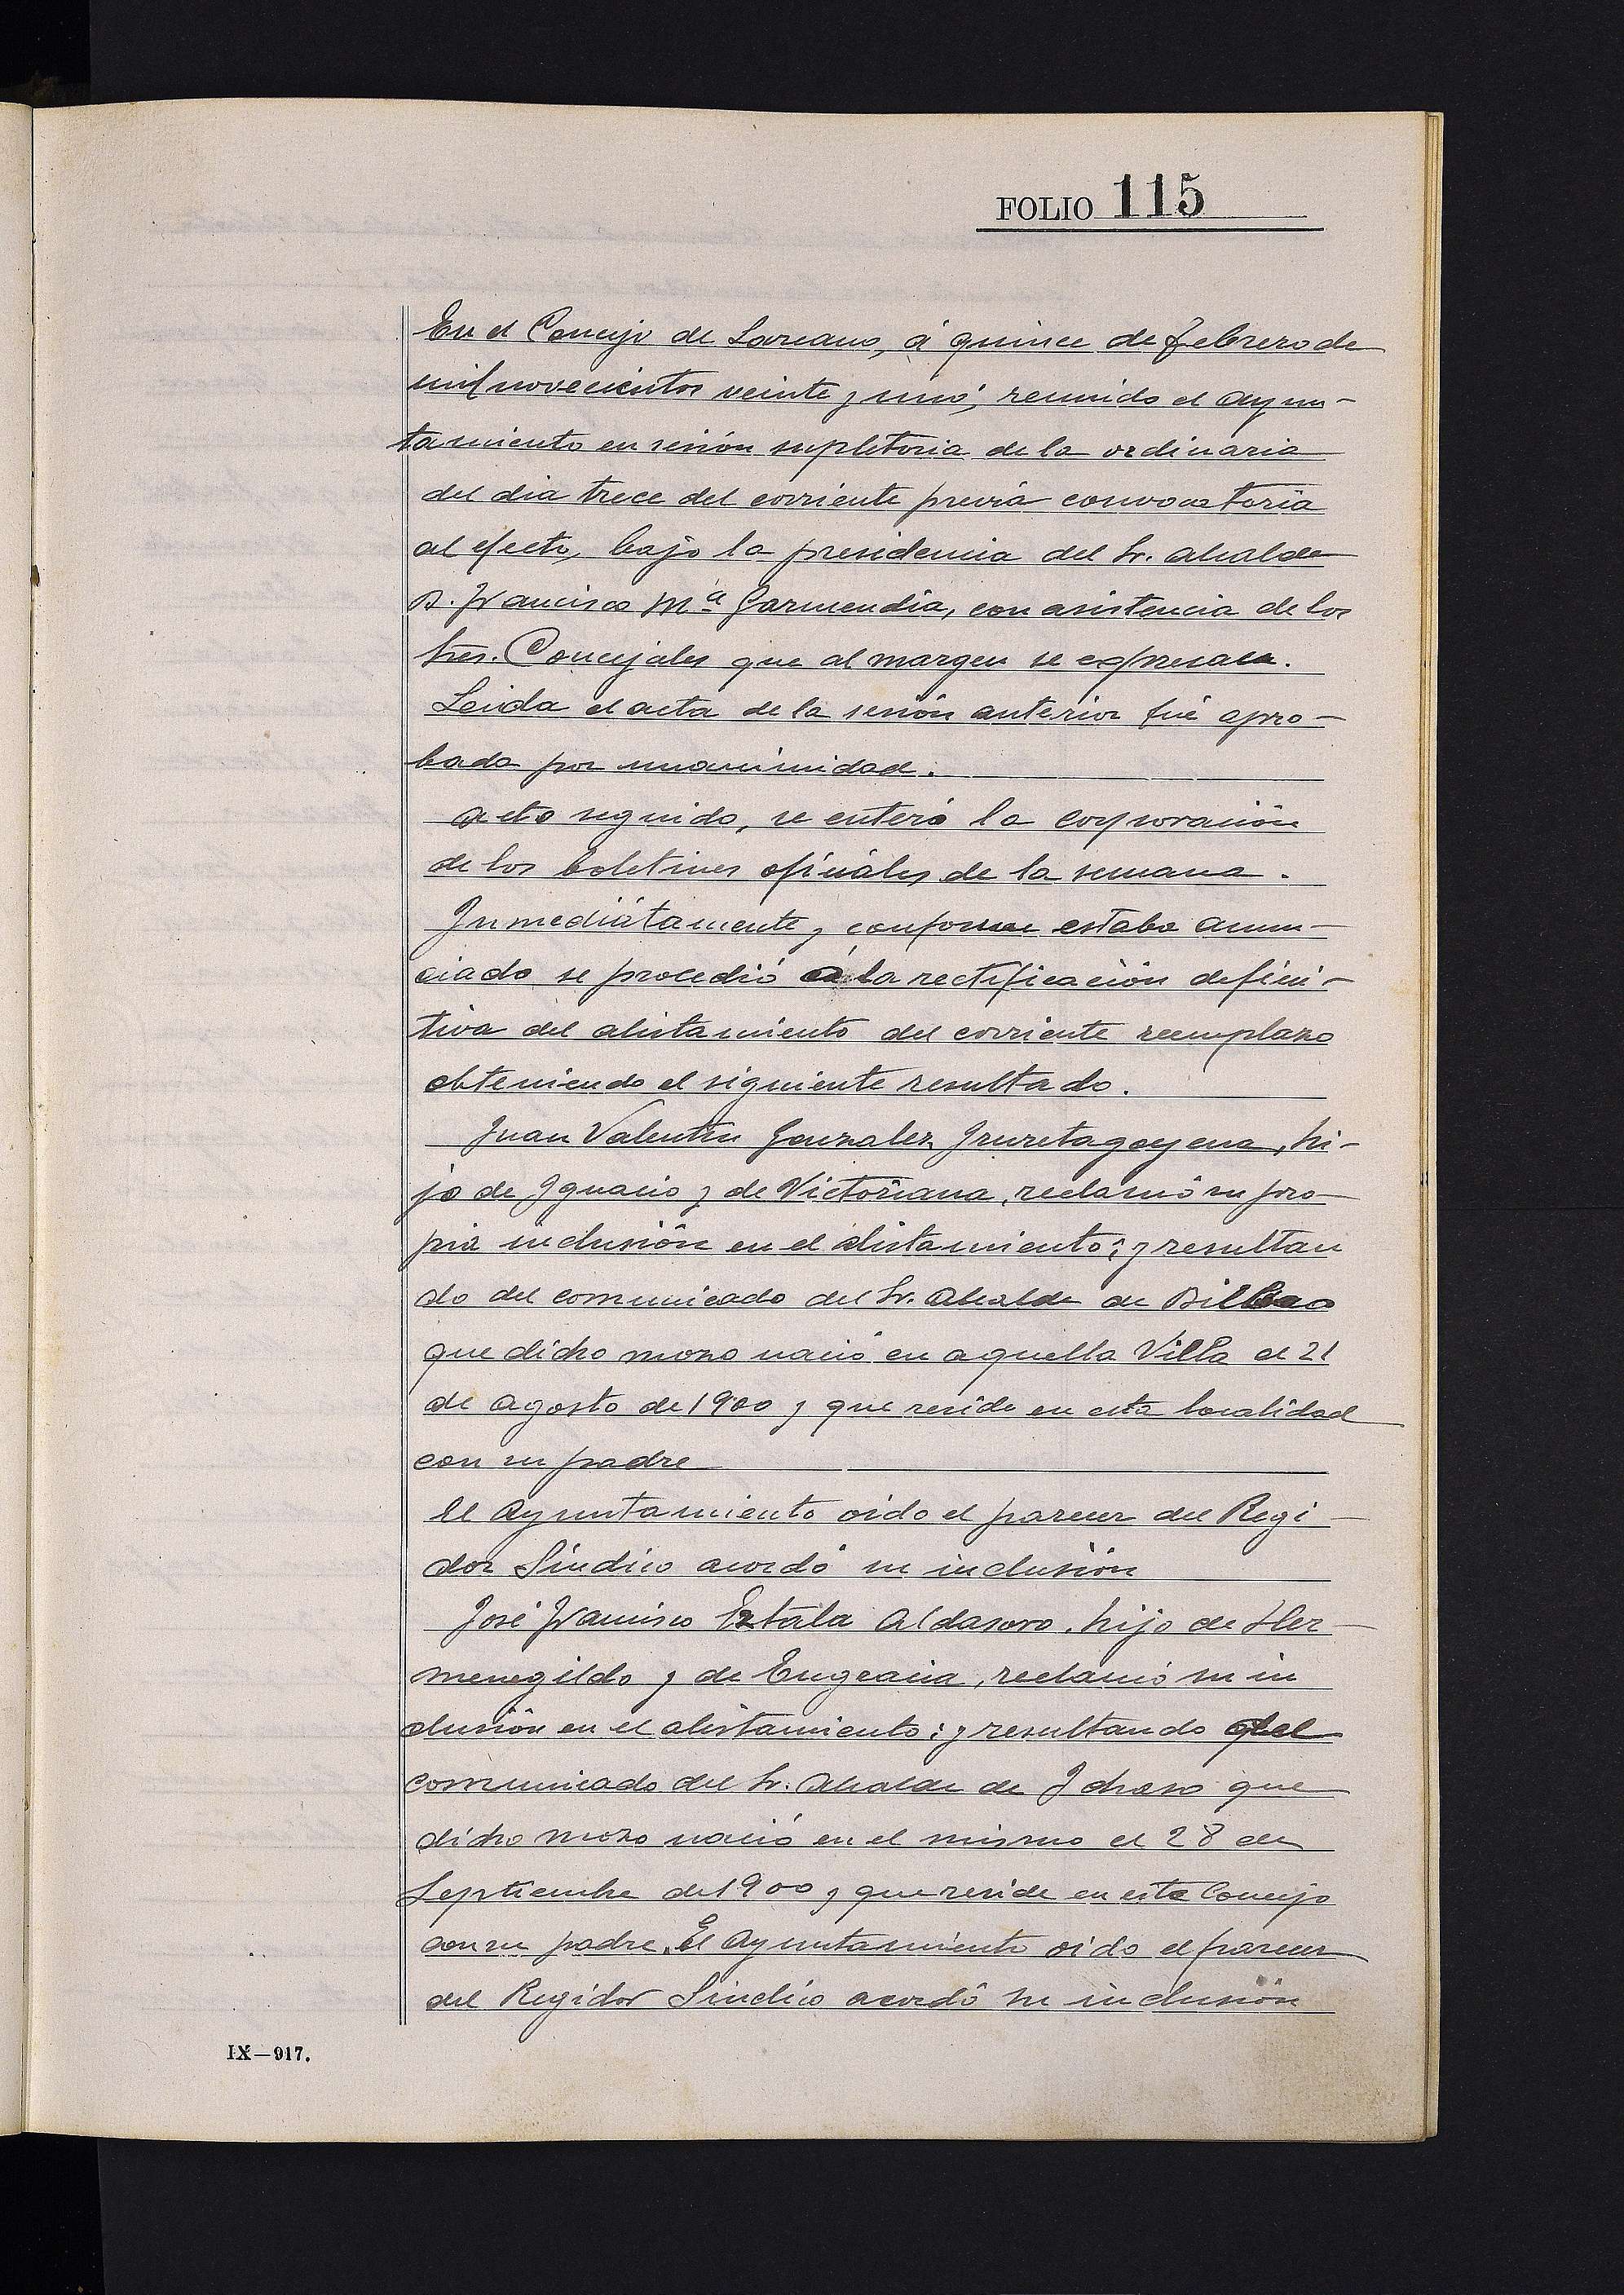 FOLIO 115
En el Concejo de Lazcano, á quince de Febrero de
mil novecientos veinte y uno, reunido el Ayun-
tamiento en sesión supletoria de la ordinaria
del dia trece del corriente previa convocatoria
al efecto, bajo la presidencia del Sr. Alcalde
D. Francisco Mª Garmendia, con asistencia de los
Sres. Concejales que al margen se expresan.
Leida el acta de la sesión anterior fué apro-
bada por unanimidad.
Acto seguido, se enteró la corporación
de los boletines oficiales de la semana.
Inmediatamente y conforme estaba anun-
ciado se procedió á la rectificación defini-
tiva del alistamiento del corriente reemplazo
obteniendo el siguiente resultado.
Juan Valentin Gonzalez Iruretagoyena, hi-
jo de Ignacio y de Victoriana, reclamó su pro-
pia inclusión en el alistamiento; y resultan
do del comunicado del Sr. Alcalde de Bilbao
que dicho mozo nació en aquella Villa el 21
de Agosto de 1900 y que reside en esta localidad
con su padre
El Ayuntamiento oido el parecer del Regi-
dor Síndico acordó su inclusión
José Francisco Estala Aldasoro, hijo de Her-
menegildo y de Engracia, reclamó su in
clusión en el alistamiento; y resultando del
comunicado del Sr. Alcalde de Idiazo que
dicho mozo nació en el mismo el 28 de
Septiembre de 1900 y que reside en este Concejo
con su padre. El Ayuntamiento oido el parecer
del Regidor Síndico acordó su inclusión
IX—917.